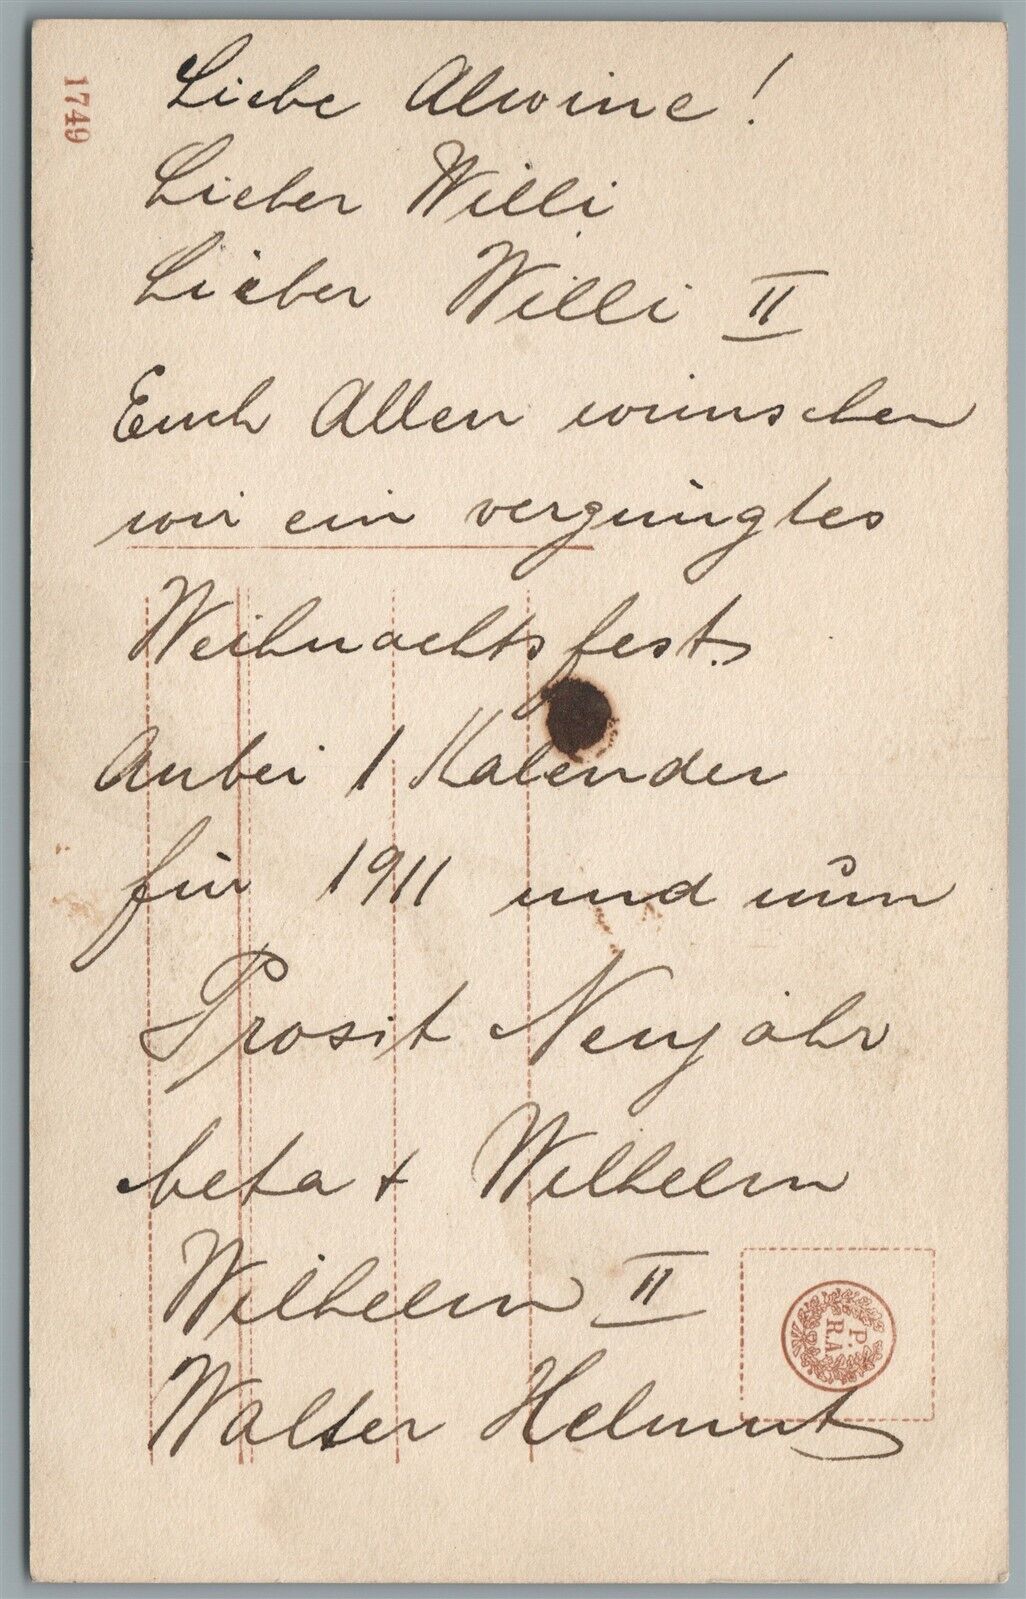 1749
Liebe Alwine!
Lieber Willi
Lieber Willi II
Euch Allen wünschen
wir ein vergnügtes
Weihnachtsfest.
Anbei 1 Kalender
für 1911 und nun
Prosit Neujahr
Meta + Wilhelm
Wilhelm II
Walter Helmut
P.
R.A